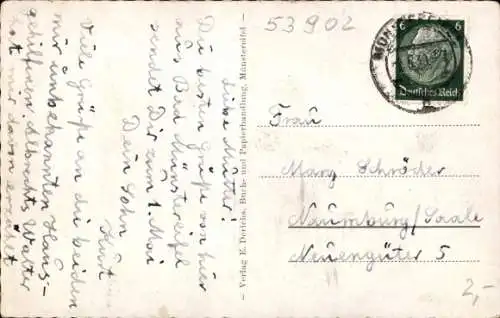 53902
Liebe Mutter!
Die besten Grüße von hier
aus Bad Münstereifel
sendet Dir zum 1. Mai
Dein Sohn
Kurt
Viele Grüße an die beiden
mir unbekannten Haus-
gehilfinnen. Albrechts Walter
hat mir davon erzählt
Verlag E. Derichs, Buch- und Papierhandlung, Münstereifel
6 6
Deutsches Reich
Frau
Marg Schröder
Naumburg/Saale
Neuengüter 5
2,-